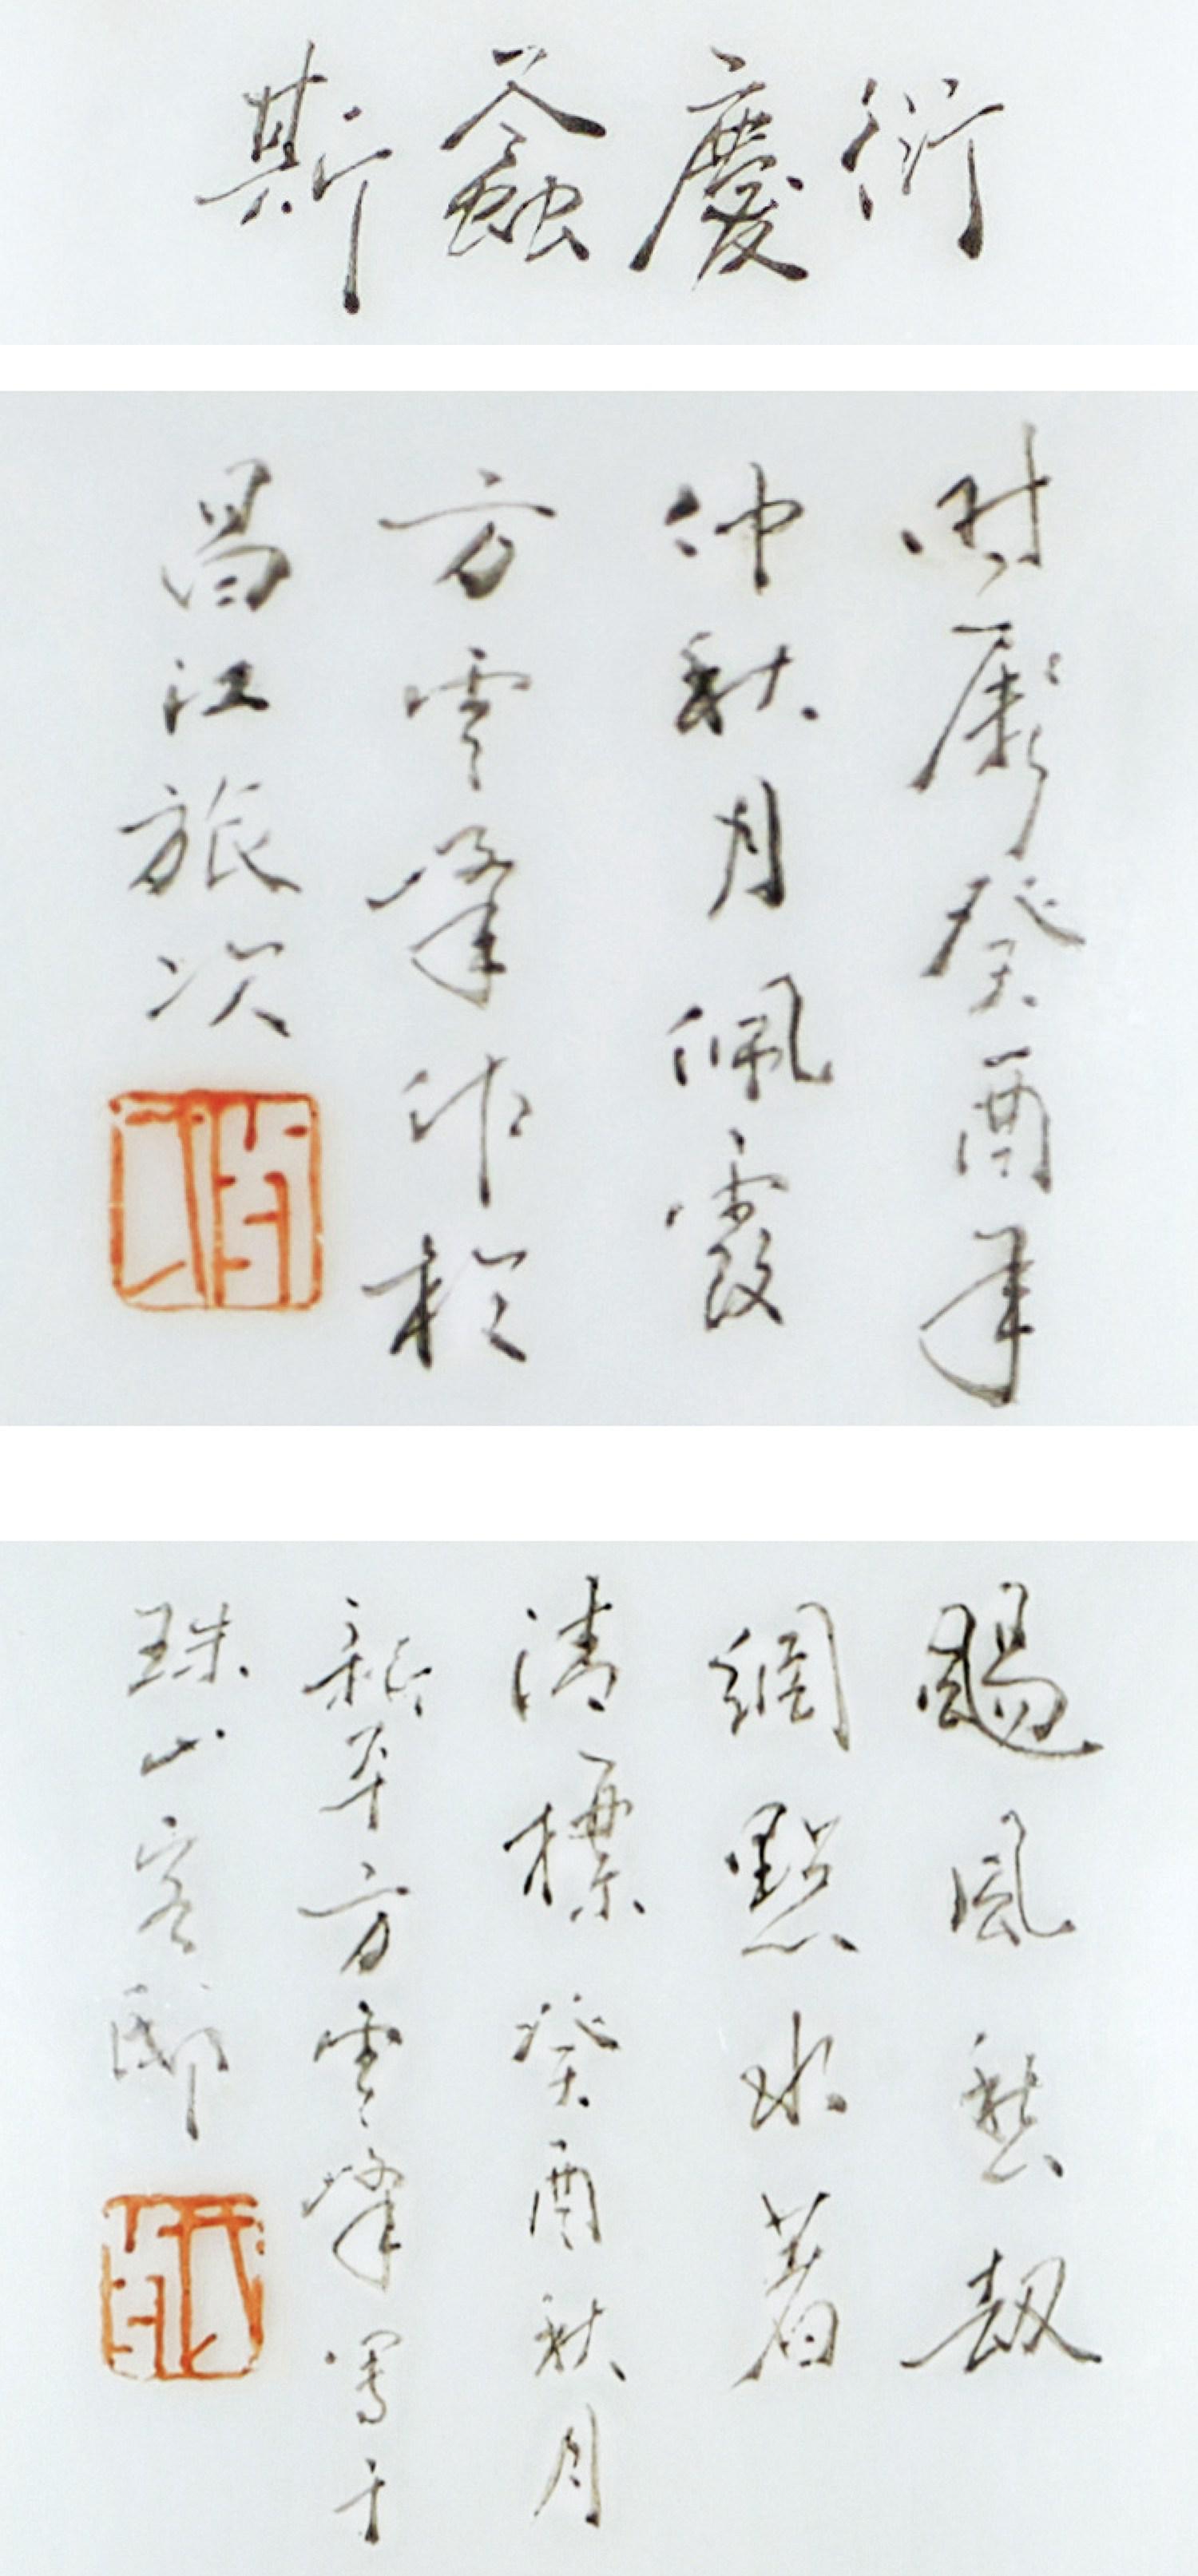 衍慶螽斯
時歷癸酉年
仲秋月佩霞
方雲峯作於
昌江旅次
颺風愁刧
網點水着
清標癸酉秋月
新平方雲峯寫于
珠山客邸